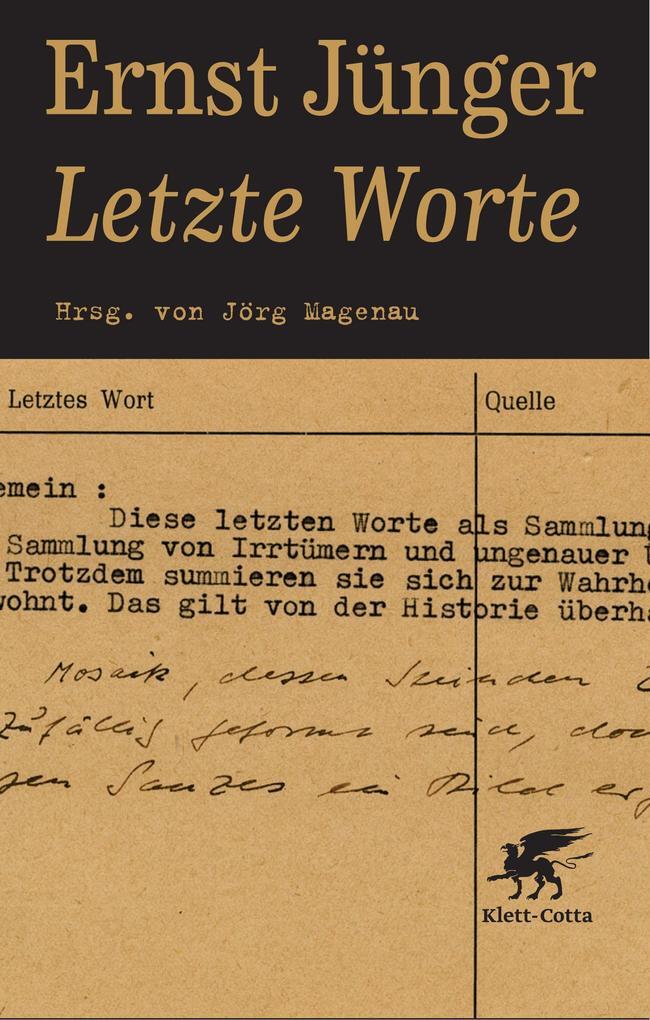 Ernst Jünger
Letzte Worte
Hrsg. von Jörg Magenau
Letztes Wort
Quelle
emein :
Diese letzten Worte als Sammlung
Sammlung von Irrtümern und ungenauer
Trotzdem summieren sie sich zur Wahrhe
wohnt. Das gilt von der Historie überha
Mosaik, dessen
zufällig geformt sind,
Ganzes ein Bild
Klett-Cotta